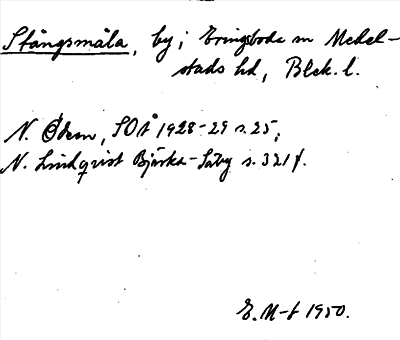 Stångsmåla, by i Eringsboda sn Medel-
stads hd, Blek. l.
N. Ödeen, SOÅ 1928-29 s. 25;
N. Lindqvist Bjärka-Säby s. 321 f.
E. M-f 1950.